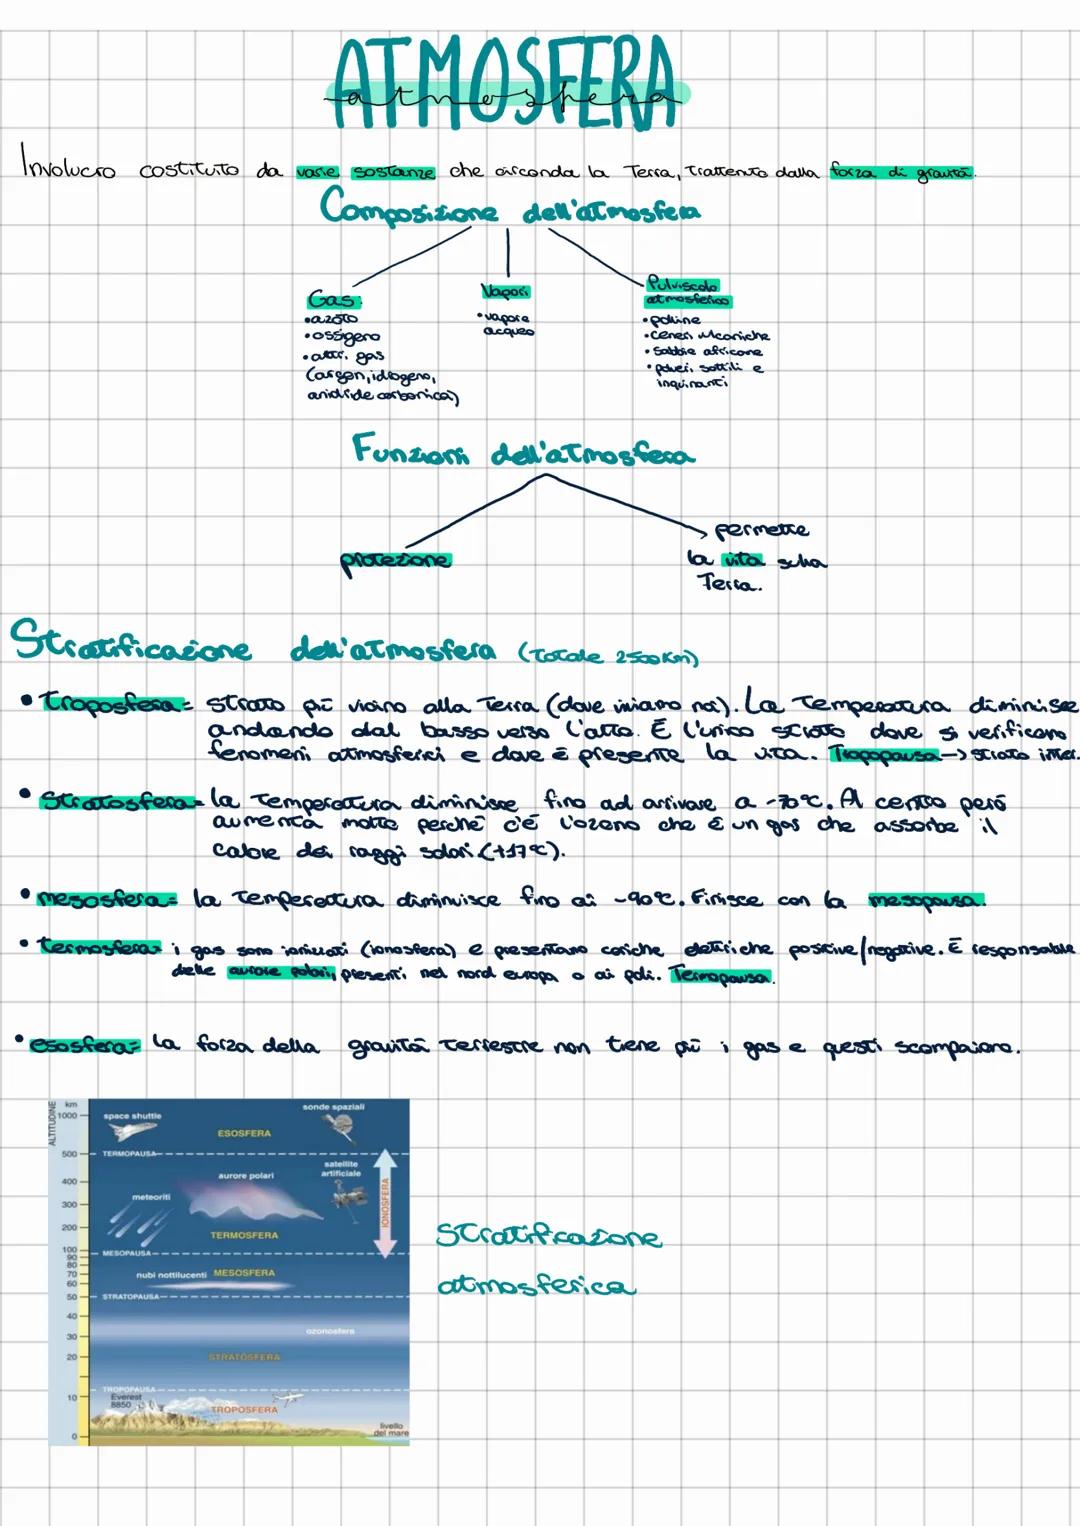 ATMOSFERA
atmosfera
Involucro costituito da varie sostanze che circonda la Terra, trattenuto dalla forza di gravità.
Composizione dell'atmosfera
Gas:
•azoto
•ossigeno
•altri gas
(argon, idrogeno,
anidride carbonica)
Vapori
•vapore
acqueo
Pulviscolo
atmosferico
•polline
•ceneri vulcaniche
•sabbie africane
•polveri sottili e
inquinanti
Funzioni dell'atmosfera
protezione
permette
la vita sulla
Terra.
Stratificazione dell'atmosfera (totale 2500 Km)
•troposfera= strato più vicino alla Terra (dove viviamo noi). La temperatura diminuisce
andando dal basso verso l'alto. È l'unico strato dove si verificano
fenomeni atmosferici e dove è presente la vita. Tropopausa -> strato inter.
•Stratosfera= la temperatura diminisce fino ad arrivare a -70°C. Al centro però
aumenta molto perché c'è l'ozono che è un gas che assorbe il
calore dei raggi solari (+17°C).
•mesosfera= la temperatura diminuisce fino ai -90°C. Finisce con la mesopausa.
•termosfera= i gas sono ionizzati (ionosfera) e presentano cariche elettriche positive/negative. È responsabile
delle aurore polari, presenti nel nord europa o ai poli. Termopausa.
•esosfera= la forza della gravità terrestre non tiene più i gas e questi scompaiono.
ALTITUDINE
km
1000
500
400
300
200
100
90
80
70
60
50
40
30
20
10
0
space shuttle
sonde spaziali
ESOSFERA
TERMOPAUSA
aurore polari
satellite
artificiale
meteoriti
IONOSFERA
TERMOSFERA
MESOPAUSA
nubi nottilucenti MESOSFERA
STRATOPAUSA
ozonosfera
STRATOSFERA
TROPOPAUSA
Everest
8850
TROPOSFERA
livello
del mare
Stratificazione
atmosferica